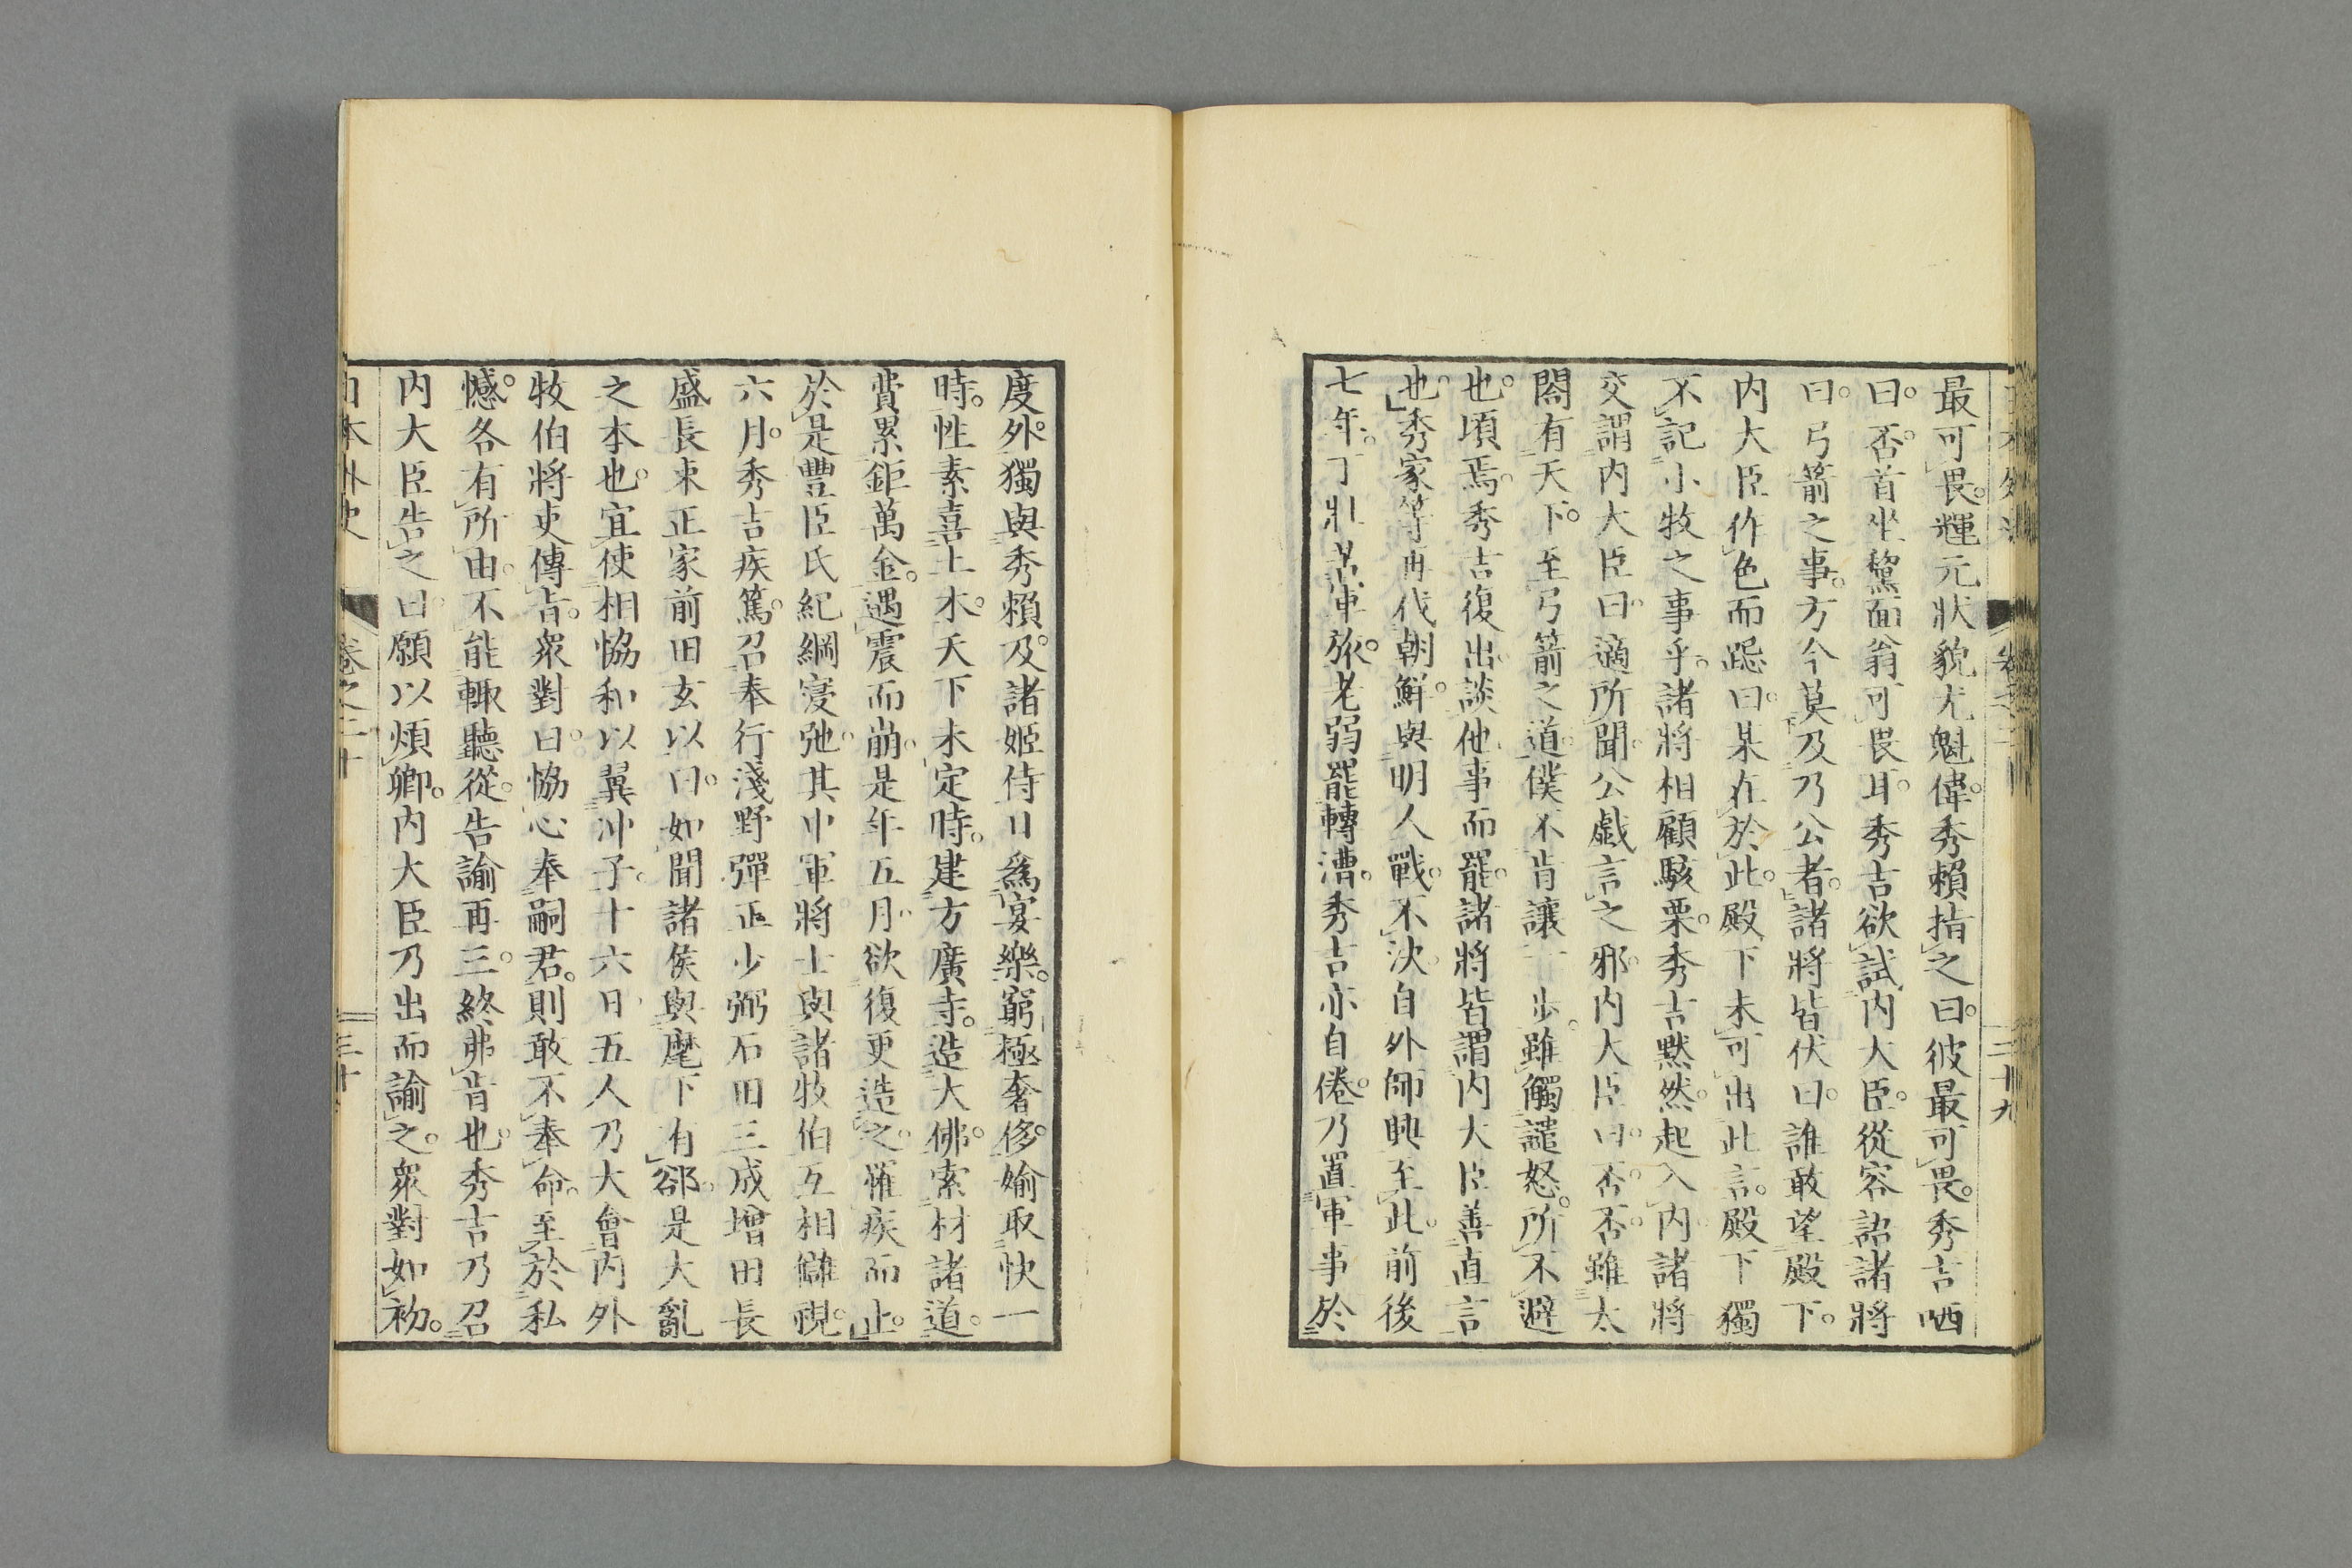 最可畏。輝元狀貌尤魁偉。秀賴指之曰。彼最可畏。秀吉哂
曰。否。首坐黧面翁可畏耳。秀吉欲試內大臣。從容詔諸將
曰。弓箭之事。方今莫及乃公者。諸將皆伏曰。誰敢望殿下。
內大臣作色而跽曰。某在於此。殿下未可出此言。殿下獨
不記小牧之事乎。諸將相顧駭栗。秀吉默然。起入內。諸將
交謂內大臣曰。適所聞。公戲言之邪。內大臣曰。否。否。雖太
閤有天下。至弓箭之道。僕不肯讓一步。雖觸譴怒。所不避
也。頃焉。秀吉復出。談他事而罷。諸將皆謂內大臣善直言
也。秀家等再伐朝鮮。與明人戰。不決。自外師興至此。前後
七年。丁壯苦軍旅。老弱罷轉漕。秀吉亦自倦。乃置軍事於
度外。獨與秀賴。及諸姬侍日爲宴樂。窮極奢侈。婾取快一
時。性素喜土木。天下未定時。建方廣寺。造大佛。索材諸道。
費累鉅萬金。遇震而崩。是年五月。欲復更造之。罹疾而止。
於是豐臣氏紀綱寖弛。其中軍將士與諸牧伯互相讎視。
六月。秀吉疾篤。召奉行淺野彈正少弼石田三成增田長
盛長束正家前田玄以。曰。如聞諸侯與麾下有郤。是大亂
之本也。宜使相恊和以翼沖子。十六日。五人乃大會內外
牧伯將吏傳旨。衆對曰。恊心奉嗣君。則敢不奉命。至於私
憾。各有所由。不能輒聽從。告諭再三。終弗肯也。秀吉乃召
內大臣告之曰。願以煩卿。內大臣乃出而諭之。衆對如初。
日本外史
卷之二十
三十
二十九